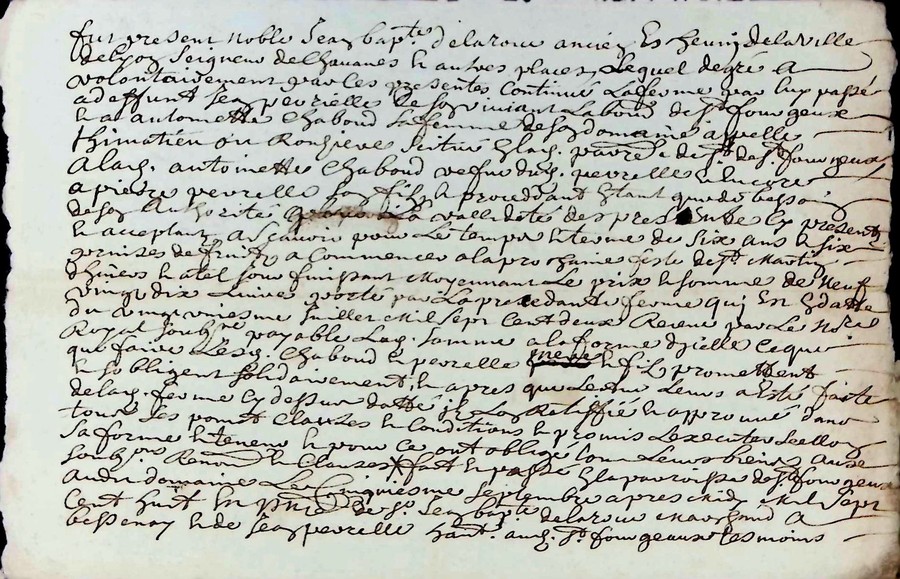 fut present noble Jean bapte delaroue ancien Eschevin de la Ville
de Lyon Seigneur de Chavanes & autres places, Lequel de gré A
volontairement par les presentes Continué La ferme par luy passé
a deffunt Jean peyrelle Le son vivant Laboud de St forgeux
& a antoinette Chaboud sa femme de son domaine appelle
thimatieu ou Ronzieres situé En lad. parre de St forgeux
A lad. antoinette Chaboud vefve dud. peyrelle & encore
a pierre peyrelle son fils procedant Estant que de besoin
de son Authorité La vallidité des presentes Cy present
& acceptant Ascavoir pour Le temps & terme de Six ans & Six
prinses de fruits a Commencer a la prochaine feste de St Martin
d'hivers & a tel jour finissant Moyennant Le prix & somme de Neuf
vingt dix Livres porté par La precedante ferme qui Est En datte
du vingt mesme Juillet Mil Sept Cent deux Receue par Le Nore
Royal soubzne payable Lad. Somme a la forme d'icelle Ce que
que faire Lesd. Chaboud & peyrelle & fils promettent
& s'obligent solidairement, & apres que Lecture Leurs a Esté faitte
de lad. ferme Cy dessus datté ils L'ont Rattiffié & approuvé dans
tous Ses points Clauses & Conditions & promis L'executer Selon
Sa forme & teneur & pour Ce ont obligé tous Leurs biens
soubzons Renons & Clauses fait & passé En la parroisse de St forgeux
audit domaine Le Cinquiesme Septembre apres Midy Mil Sept
Cent huit En pnce de Sr Jean bapte delaroue Marchand A
bessenay & de Jean peyrelle hant. aud. St forgeaux tesmoins